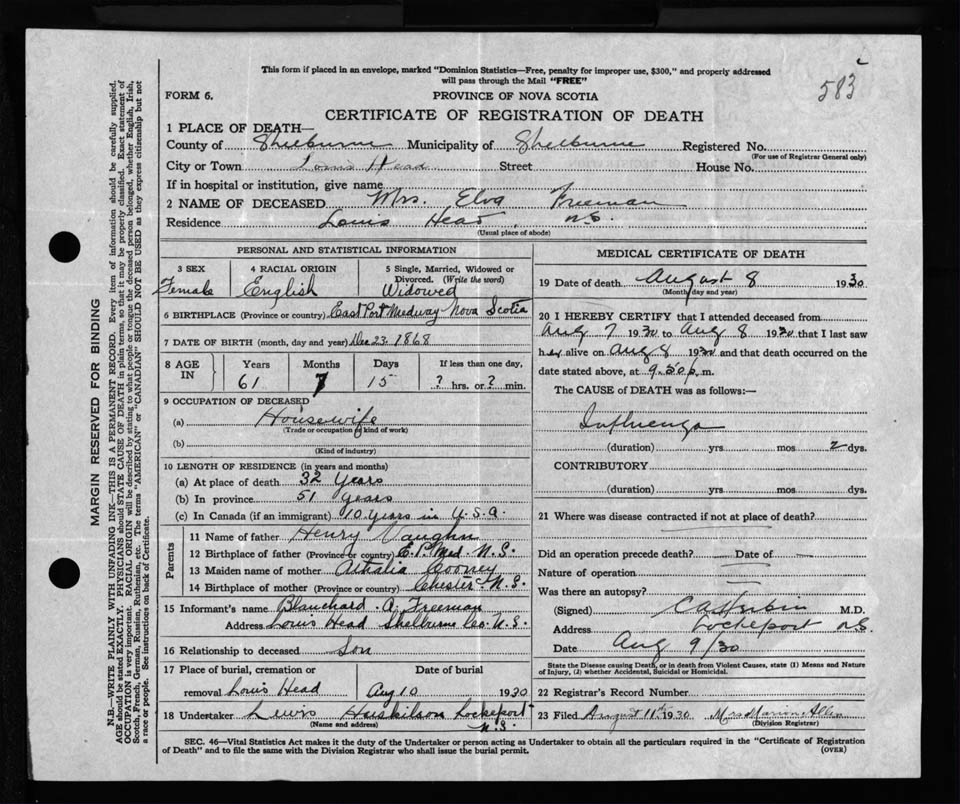 583
This form if placed in an envelope, marked "Dominion Statistics—Free, penalty for improper use, $300," and properly addressed
will pass through the Mail "FREE"
FORM 6.
PROVINCE OF NOVA SCOTIA
CERTIFICATE OF REGISTRATION OF DEATH
1 PLACE OF DEATH—
County of Shelburne Municipality of Shelburne Registered No.
(For use of Registrar General only)
City or Town Louis Head Street House No.
If in hospital or institution, give name
2 NAME OF DECEASED Mrs. Elva Freeman
Residence Louis Head N.S.
(Usual place of abode)
PERSONAL AND STATISTICAL INFORMATION
3 SEX 4 RACIAL ORIGIN 5 Single, Married, Widowed or
Divorced. (Write the word)
Female English Widowed
6 BIRTHPLACE (Province or country) East Port Medway Nova Scotia
7 DATE OF BIRTH (month, day and year) Dec 23. 1868
8 AGE IN Years Months Days If less than one day,
61 7 15 ? hrs. or ? min.
9 OCCUPATION OF DECEASED
(a) Housewife
(Trade or occupation or kind of work)
(b)
(Kind of industry)
10 LENGTH OF RESIDENCE (in years and months)
(a) At place of death 32 Years
(b) In province 51 years
(c) In Canada (if an immigrant) 10 years in U.S.A.
Parents
11 Name of father Henry Vaughn
12 Birthplace of father (Province or country) E. P. Med. N.S.
13 Maiden name of mother Athalia Cooney
14 Birthplace of mother (Province or country) Chester N.S.
15 Informant's name Blanchard A. Freeman
Address Louis Head Shelburne Co. N.S.
16 Relationship to deceased Son
17 Place of burial, cremation or Date of burial
removal Louis Head Aug 10 1930
18 Undertaker Lewis Huskilson Lockeport
(Name and address) N.S.
MEDICAL CERTIFICATE OF DEATH
19 Date of death August 8 1930
(Month, day and year)
20 I HEREBY CERTIFY that I attended deceased from
Aug 7 1930 to Aug 8 1930 that I last saw
her alive on Aug 8 1930 and that death occurred on the
date stated above, at 9.50 p.m.
The CAUSE of DEATH was as follows:—
Influenza
(duration) yrs mos 2 dys.
CONTRIBUTORY
(duration) yrs mos dys.
21 Where was disease contracted if not at place of death?
Did an operation precede death? — Date of —
Nature of operation
Was there an autopsy?
(Signed) M.D.
Address Lockeport N.S.
Date Aug 9/30
State the Disease causing Death, or in death from Violent Causes, state (1) Means and Nature
of Injury, (2) whether Accidental, Suicidal or Homicidal.
22 Registrar's Record Number
23 Filed August 11th 1930 Mrs Marion Allen
(Division Registrar)
SEC. 46—Vital Statistics Act makes it the duty of the Undertaker or person acting as Undertaker to obtain all the particulars required in the "Certificate of Registration
of Death" and to file the same with the Division Registrar who shall issue the burial permit. (OVER)
MARGIN RESERVED FOR BINDING
N.B.—WRITE PLAINLY WITH UNFADING INK—THIS IS A PERMANENT RECORD. Every item of information should be carefully supplied.
AGE should be stated EXACTLY. PHYSICIANS should STATE CAUSE OF DEATH in plain terms, so that it may be properly classified. Exact statement of
OCCUPATION is very important. RACIAL ORIGIN will be described by stating to what people or tongue the deceased person belonged, whether English, Irish,
Scotch, French, German, Russian, Ruthenian, etc. The terms "AMERICAN" or "CANADIAN" SHOULD NOT BE USED as they express citizenship but not
a race or people. See instructions on back of Certificate.